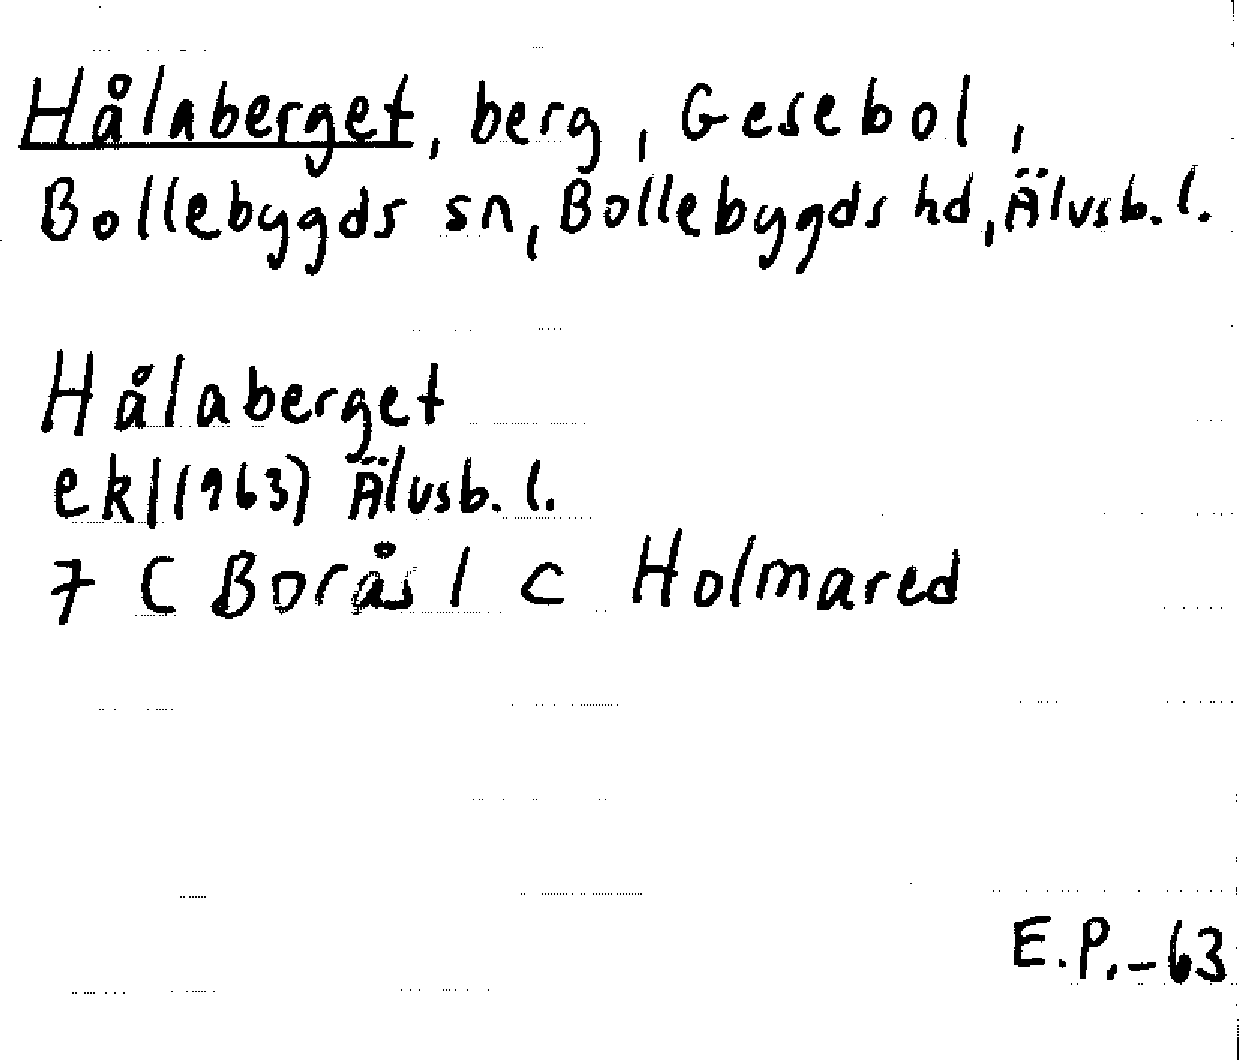 Hålaberget, berg, Gesebol,
Bollebygds sn, Bollebygds hd, Älvsb. l.
Hålaberget
ekl (1963) Älvsb. l.
7 C Borås 1 c Holmared
E.P.-63